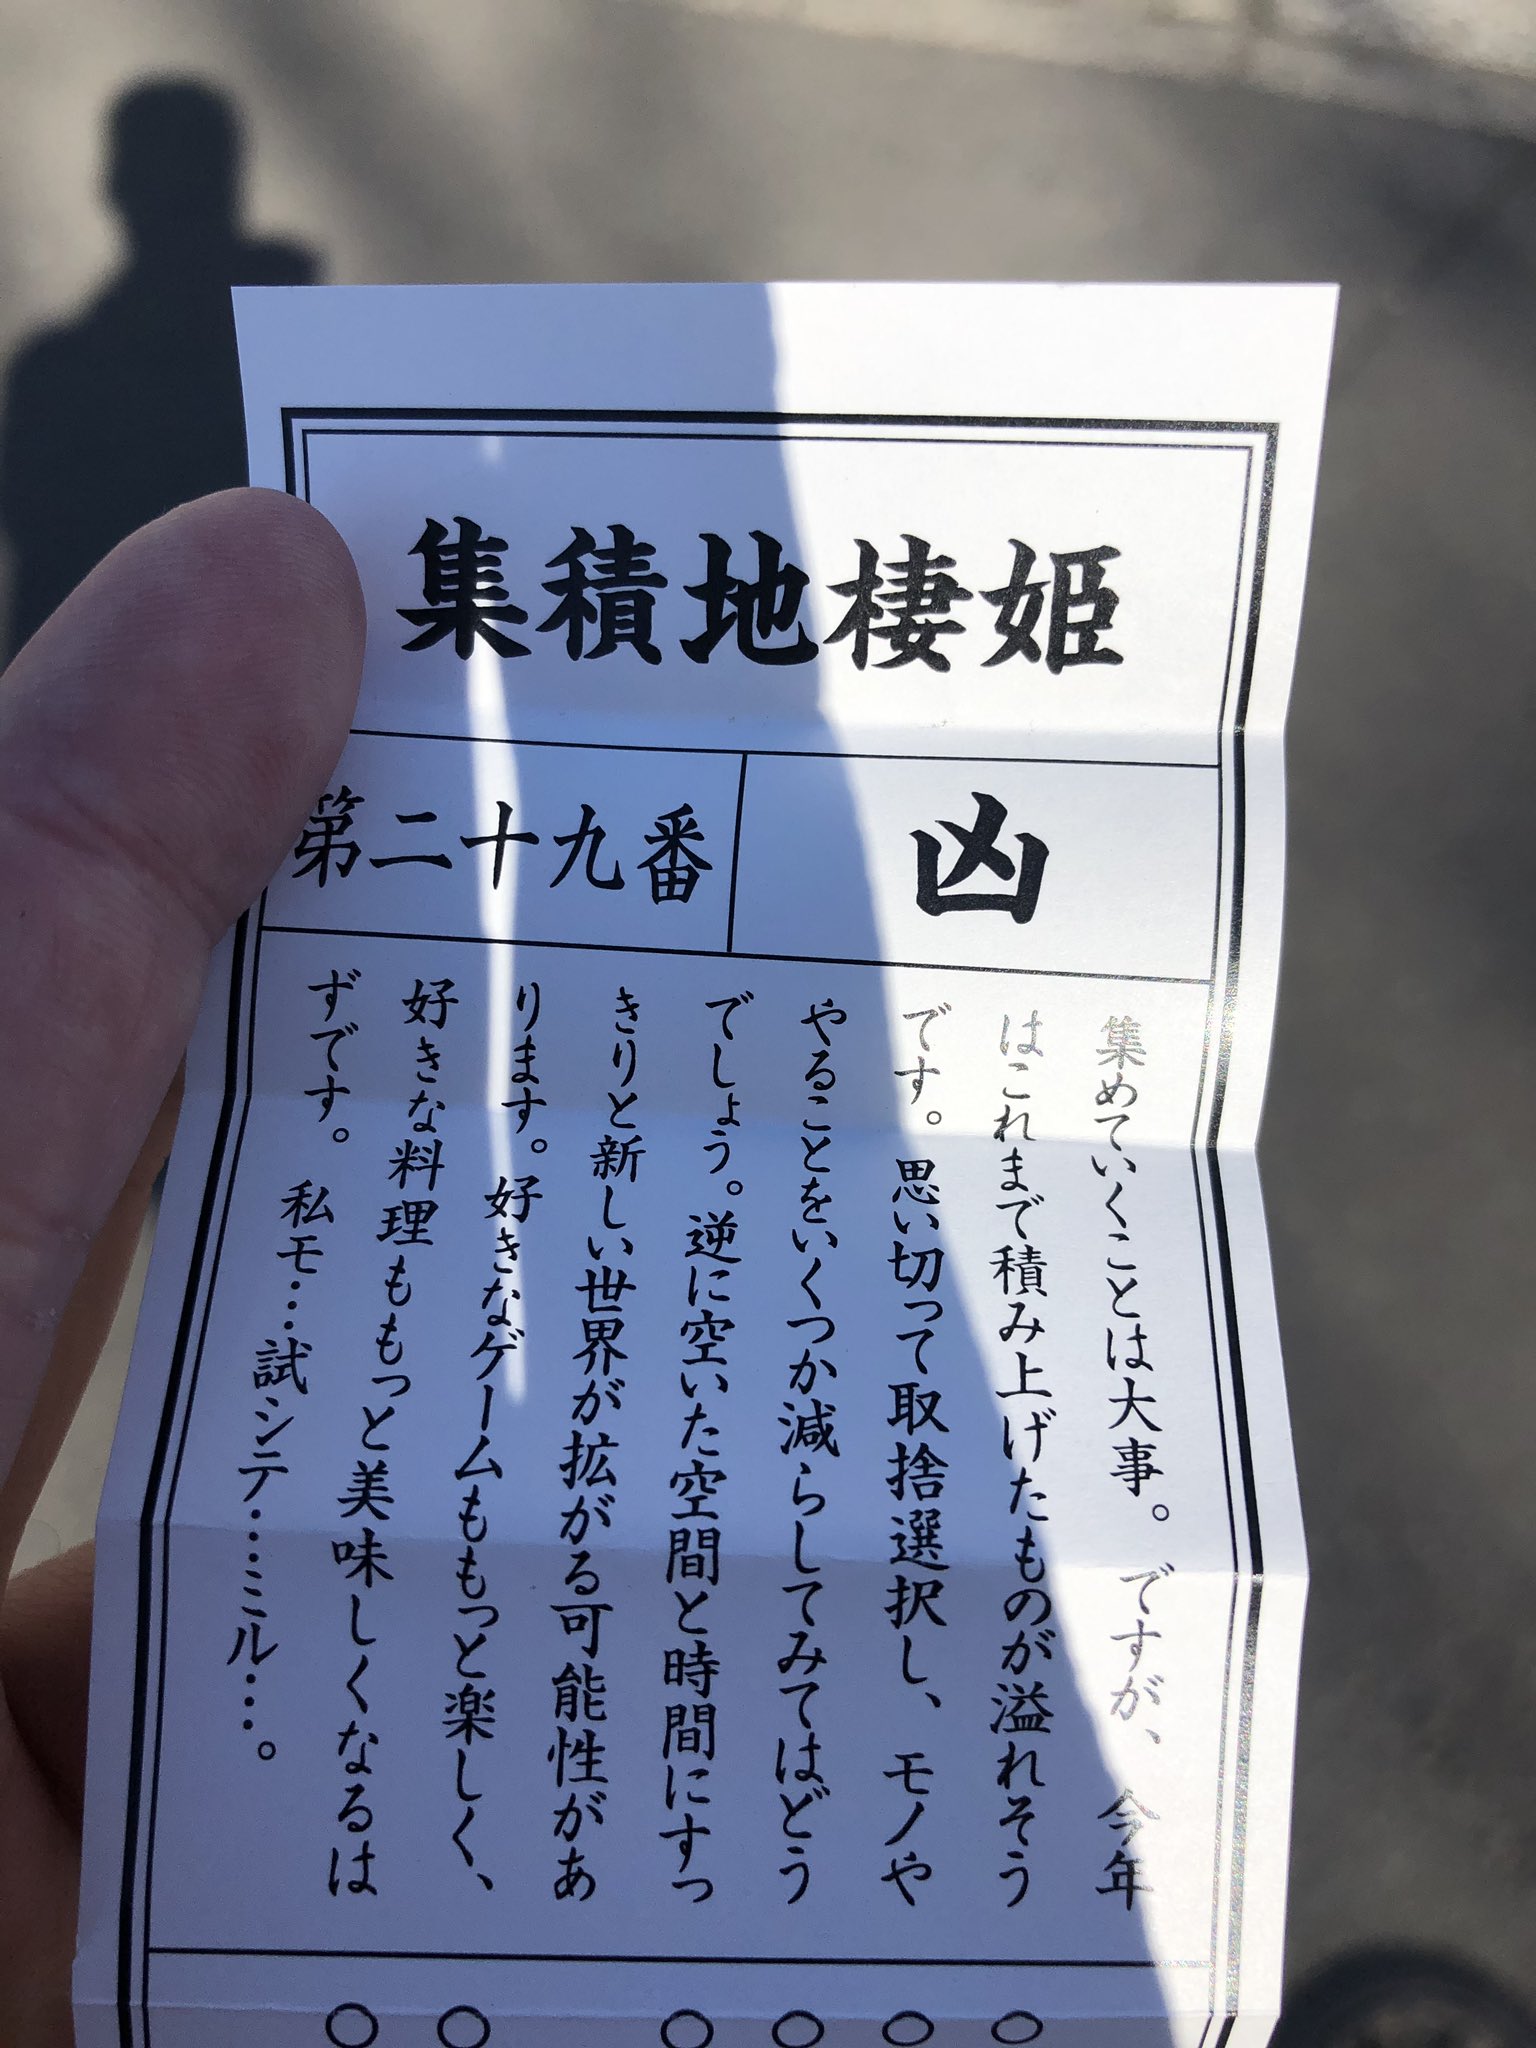 集積地棲姫
第二十九番
凶
集めていくことは大事。ですが、今年
はこれまで積み上げたものが溢れそう
です。思い切って取捨選択し、モノや
やることをいくつか減らしてみてはどう
でしょう。逆に空いた空間と時間にすっ
きりと新しい世界が拡がる可能性があ
ります。好きなゲームももっと楽しく、
好きな料理ももっと美味しくなるは
ずです。私モ…試シテ……ミル…。
○○○○○○